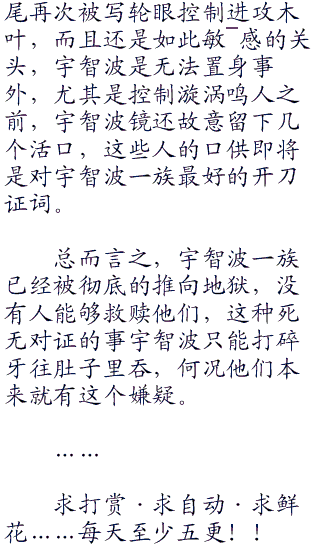 尾再次被写轮眼控制进攻木
叶，而且还是如此敏ˉ感的关
头，宇智波是无法置身事
外，尤其是控制漩涡鸣人之
前，宇智波镜还故意留下几
个活口，这些人的口供即将
是对宇智波一族最好的开刀
证词。
总而言之，宇智波一族
已经被彻底的推向地狱，没
有人能够救赎他们，这种死
无对证的事宇智波只能打碎
牙往肚子里吞，何况他们本
来就有这个嫌疑。
……
求打赏·求自动·求鲜
花……每天至少五更！！